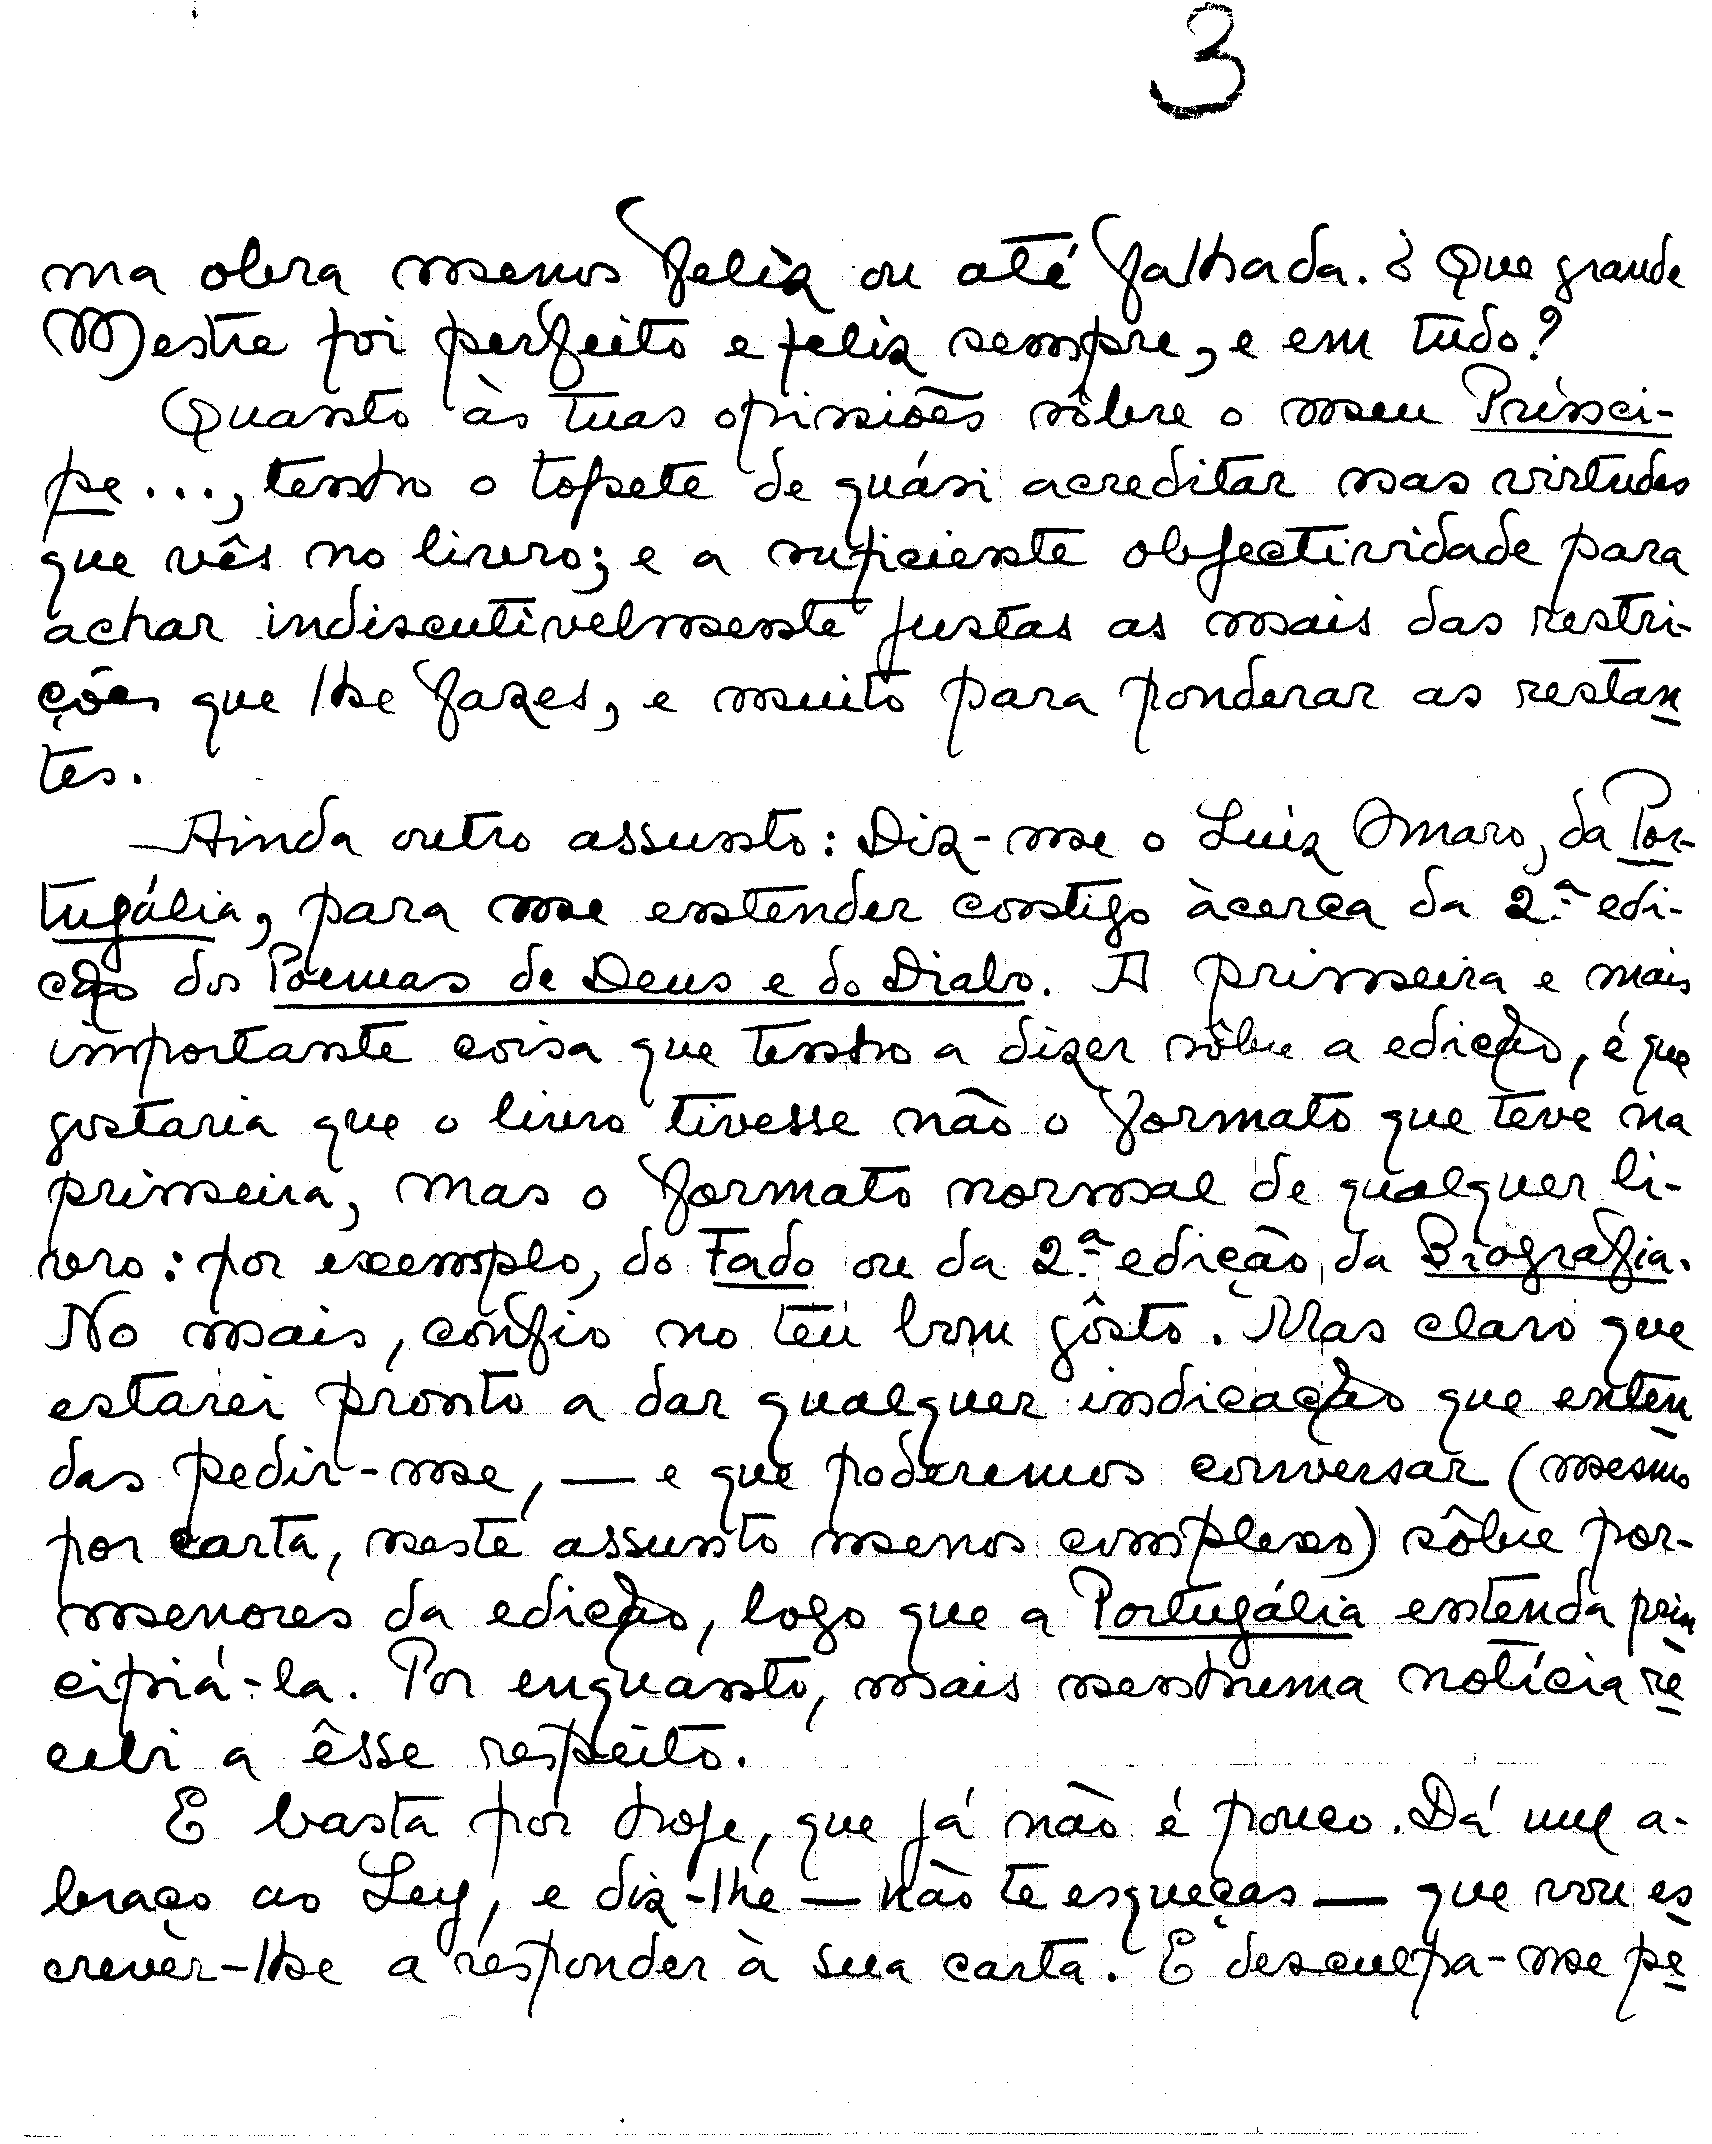 3
ma obra menos feliz ou até falhada. ¿ Que grande
Mestre foi perfeito e feliz sempre, e em tudo?
Quanto às tuas opiniões sôbre o meu Prínci-
pe..., tenho o topete de quási acreditar nas virtudes
que vês no livro; e a suficiente objectividade para
achar indiscutivelmente justas as mais das restri-
ções que lhe fazes, e muito para ponderar as restan
tes.
Ainda outro assunto: Diz-me o Luiz Amaro, da Por-
tugália, para me entender contigo àcerca da 2.ª edi-
ção dos Poemas de Deus e do Diabo. A primeira e mais
importante coisa que tenho a dizer sôbre a edição, é que
gostaria que o livro tivesse não o formato que teve na
primeira, mas o formato normal de qualquer li-
vro: por exemplo, do Fado ou da 2.ª edição da Biografia.
No mais, confio no teu bom gôsto. Mas claro que
estarei pronto a dar qualquer indicação que enten
das pedir-me, — e que poderemos conversar (mesmo
por carta, neste assunto menos complexo) sôbre por-
menores da edição, logo que a Portugália entenda prin
cipiá-la. Por enquanto, mais nenhuma notícia re
cebi a êsse respeito.
E basta por hoje, que já não é pouco. Dá um a-
braço ao Ley, e diz-lhe — não te esqueças — que vou es
crever-lhe a responder à sua carta. E desculpa-me pe